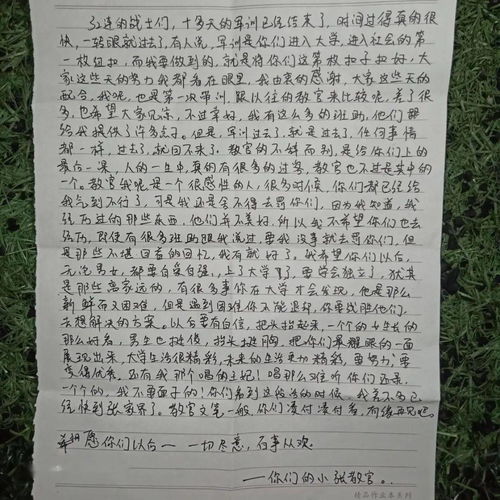 连的战士们,十多天的军训已经结束了,时间过得真的很
快,一转眼就过去了,有人说,军训是你们进入大学,进入社会的第
一枚纽扣,而我要做到的,就是将你们这第一枚扣子扣好,大
家这些天的努力我都看在眼里,我由衷的感谢,大家这些天的
配合,我呢,也是第一次带训,跟以往的教官来比较呢,差了很
多,也希望大家见谅,不过幸好,我有这么多的班助,他们都
给我提供了许多点子。但是,军训过去了,就是过去了,任何事情
都一样,过去了,就回不来了,教官的不辞而别,是给你们上的
最后一课,人的一生中,真的有很多的过客,教官也不过是其中的
一个。教官我呢是一个很感性的人,很多时候,你们都已经给
我气到不行了,可是我还是舍不得去骂你们,因为我知道,我
经历过的那些东西,他们并不美好,所以我不希望你们也去
经历,即使有很多班助跟我说过,要我没事就去骂你们,但
是那些不堪回首的回忆,我有就好了。我希望你们以后,
无论男女,都要自爱自强,上了大学了,要学会独立了,尤其
是那些离家远的,有很多事你在大学才会发现,他是那么
新鲜而又困难,但是遇到困难你不能退却,你要战胜他们,
去想解决的方案。以后要有自信,把头抬起来,一个个的女生长的
那么好看,男生也挺俊,抬头挺胸,把你们最耀眼的一面
展现出来,大学生活很精彩,未来的生活更加精彩,要努力,要
变得优秀。还有我那个唱的主妃!唱那么难听你们还录,
一个个的,我不要面子的!你们看到这段话的时候,我差不多已
经快到张家界了。教官文笔一般,你们凑付凑付看,有缘再见吧。
愿你们以后——一切尽意,百事从欢
——你们的小张教官。
精品作业本系列